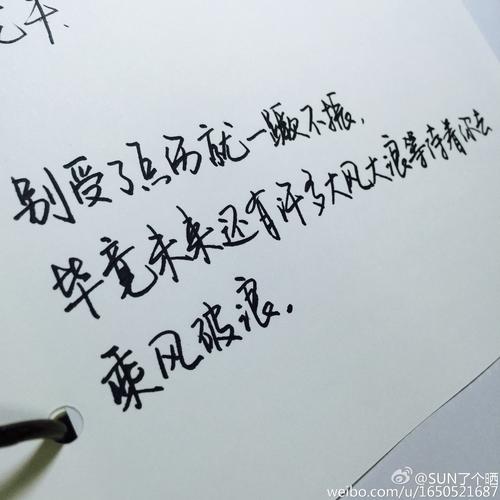 别受了点伤就一蹶不振，
毕竟未来还有许多大风大浪等待着你去
乘风破浪．
@SUN了个晒
weibo.com/u/1650521687